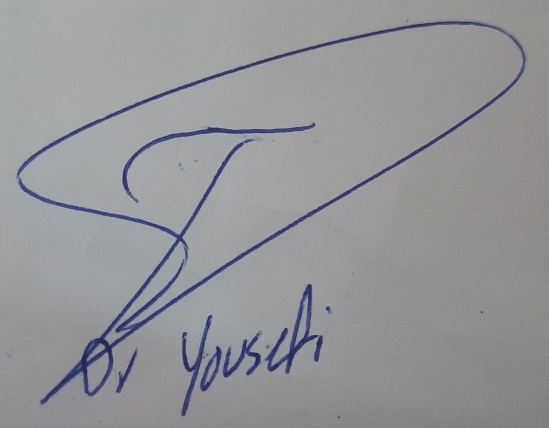 Dr Yousefi